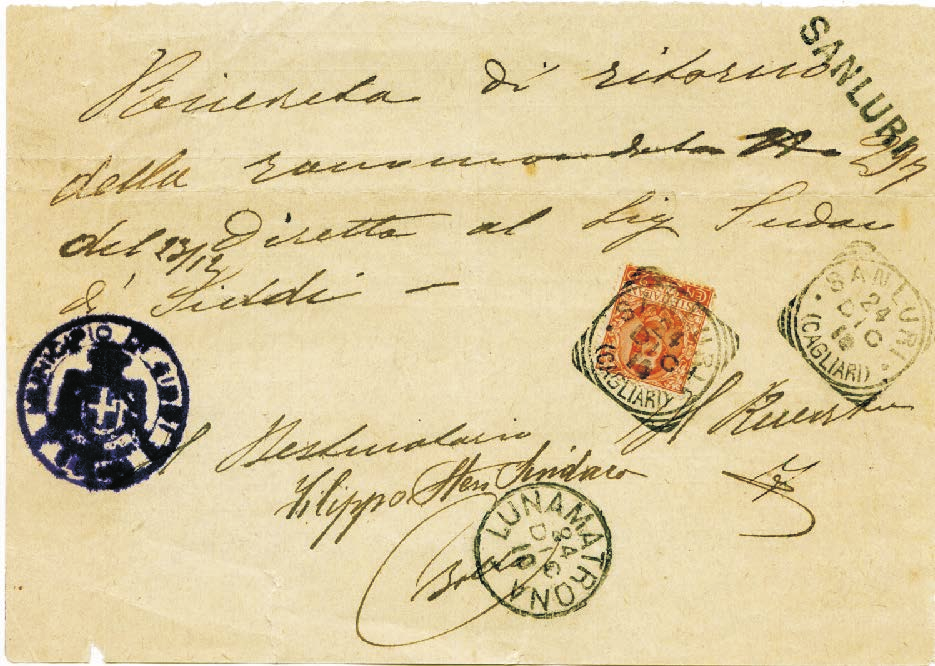 SANLURI
Ricevuta di ritorno
della raccomandata N. 297
del 23/12 Diretta al Sig Sindaco
di Siddi
SANLURI
24
DIC
10
(CAGLIARI)
SANLURI
24
DIC
10
(CAGLIARI)
MUNICIPIO DI
Il Destinatario Il
Filippo Sindaco
LUNAMATRONA
24
DIC
10